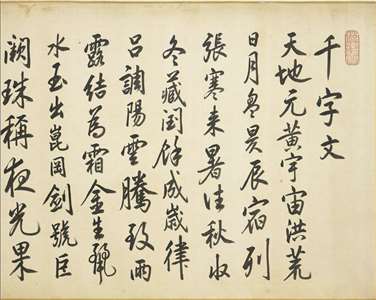 千字文
天地元黃宇宙洪荒
日月盈昃辰宿列
張寒来暑往秋收
冬藏閏餘成歲律
呂調陽雲騰致雨
露結為霜金生麗
水玉出崑岡劍號巨
闕珠稱夜光果